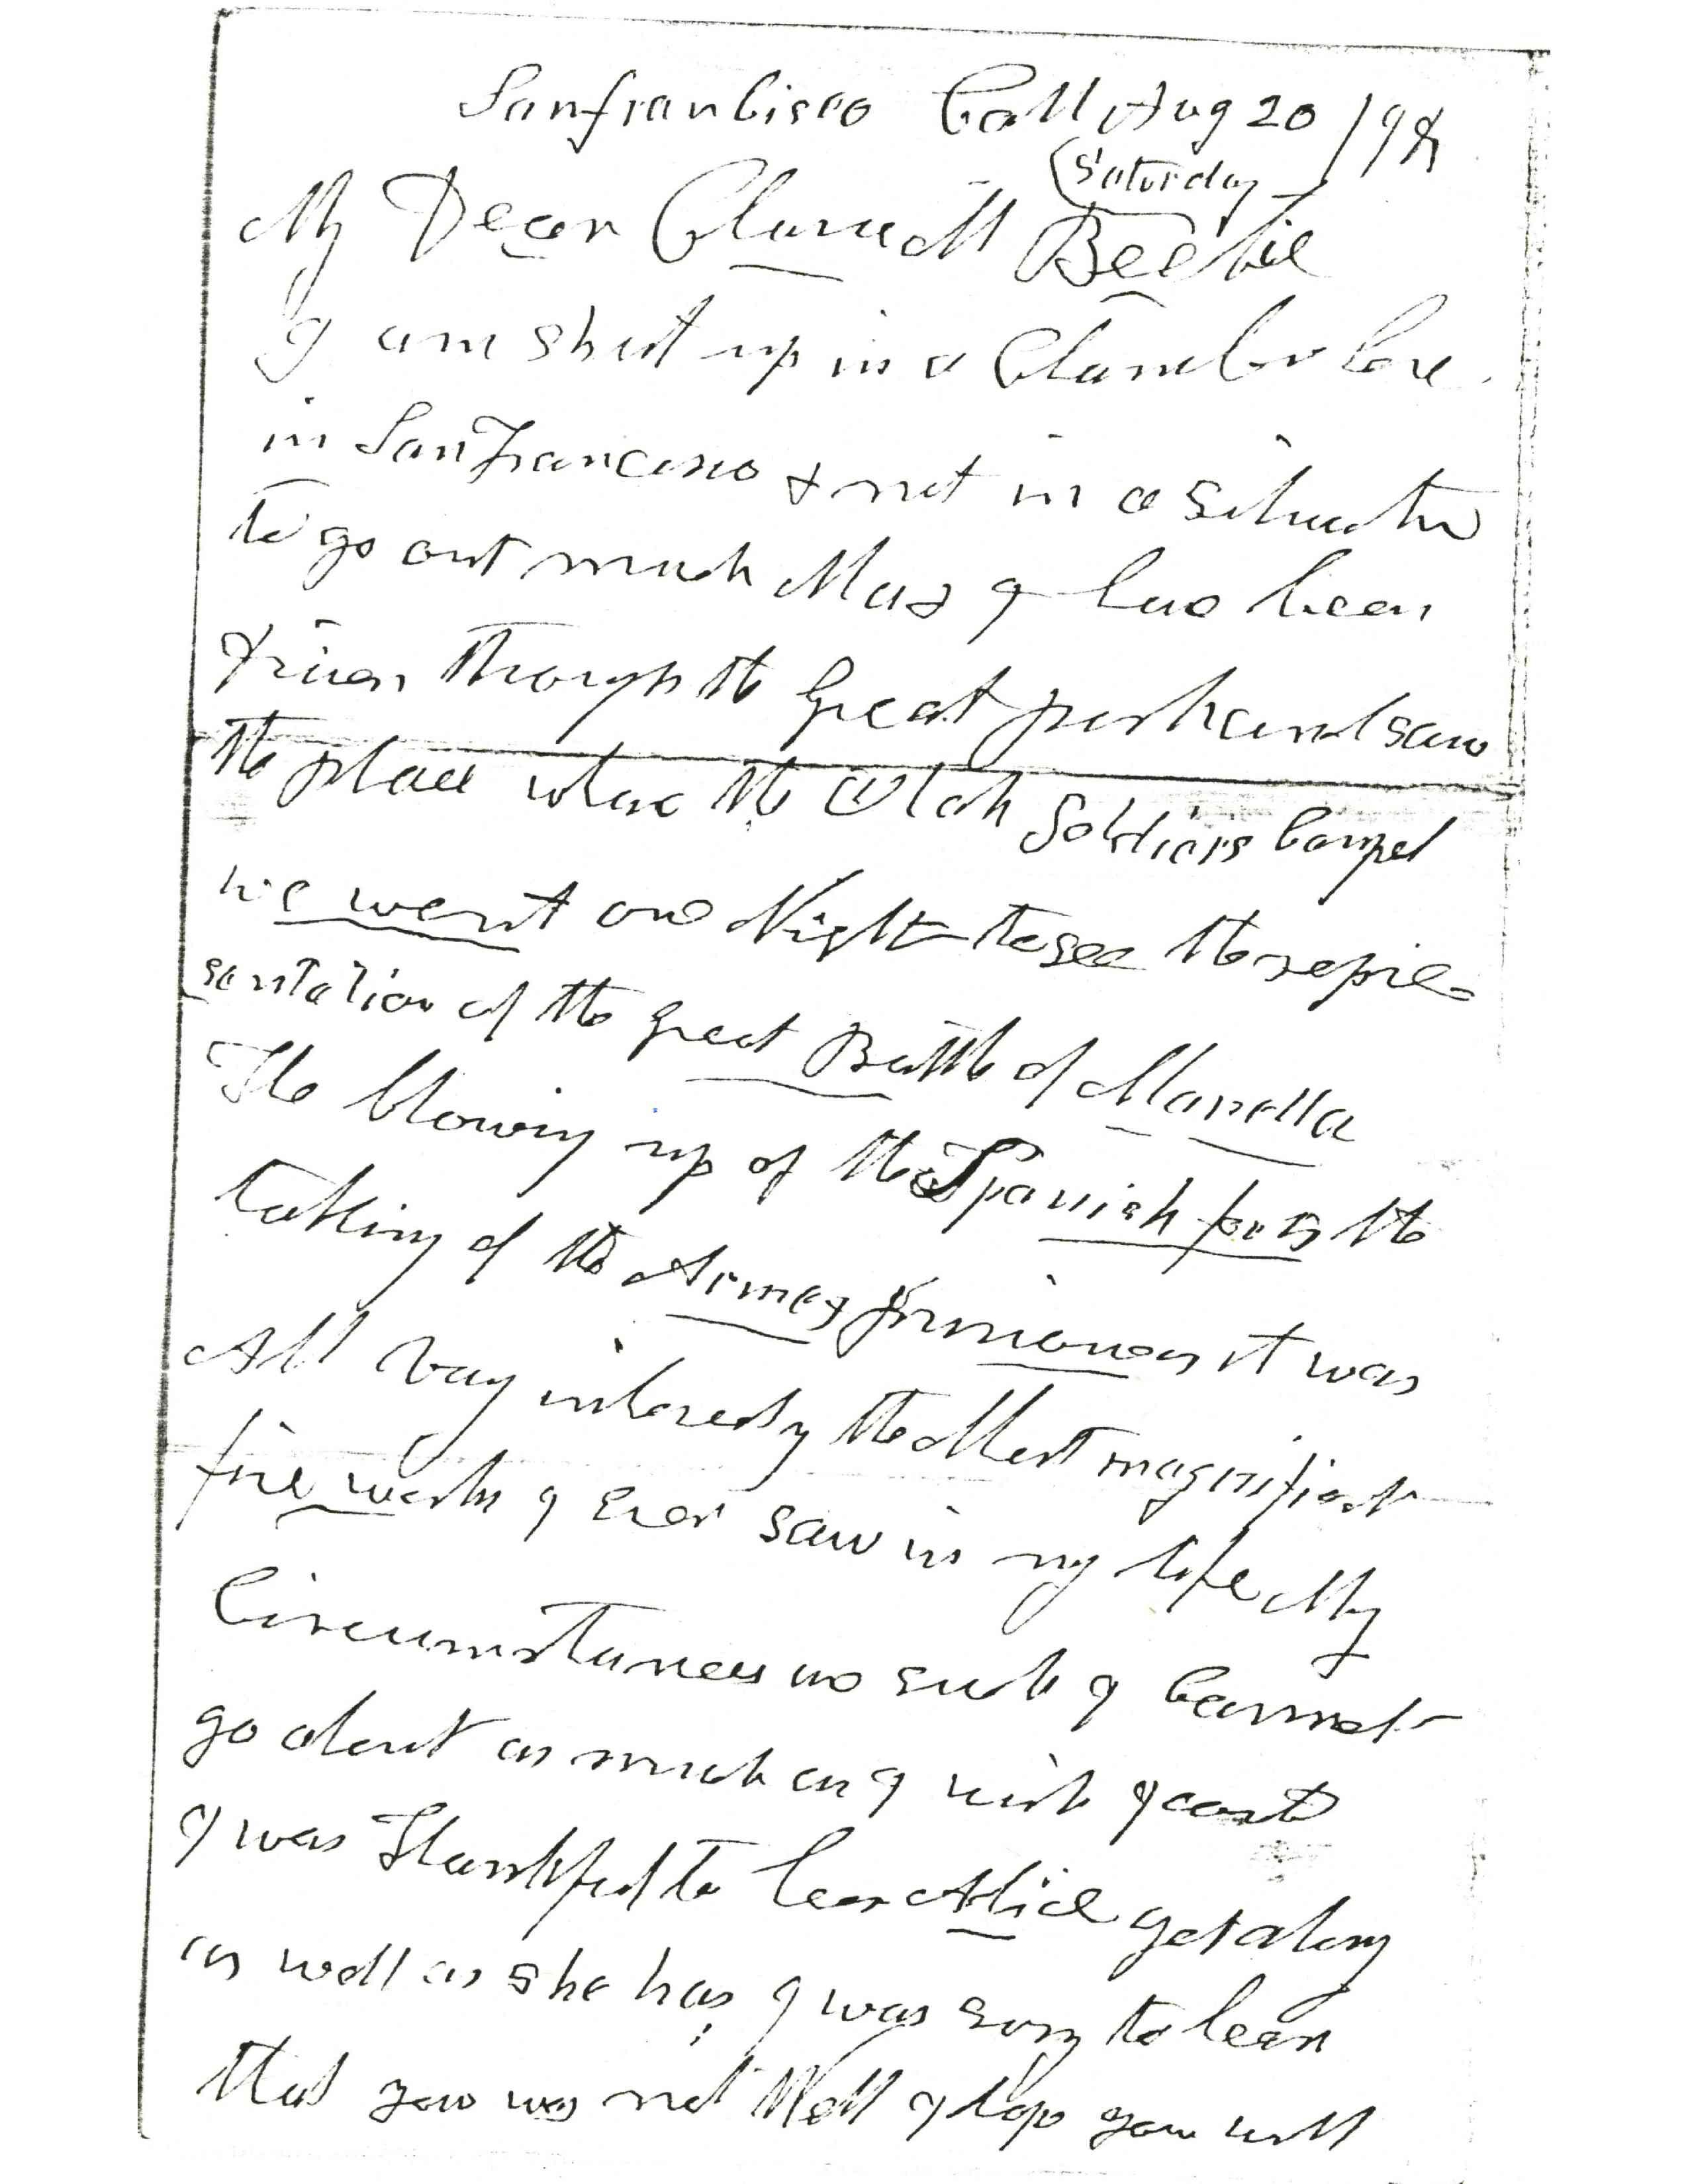 Sanfrancisco Call Aug 20 /98
(Saturday
My Dear Beebie
I am shut up in a Chamber here
in San Francisco & not in a Situatin
to go out much Mus I have been
driven through the Great park and saw
the place whare the Utah Soldiers Camped
we went one Night to see the repre-
sentation of the great Battle of Manella
The blowing up of the Spanish forts the
taking of the Armey prisioners it was
All vary intaresting the Most magnificent
fire works I Ever saw in my life My
Circumstances are such I Cannot
go about as much as I wish
I was Thankful to hear Alice get along
as well as she has I was sorry to hear
that you was not Well I hope you will